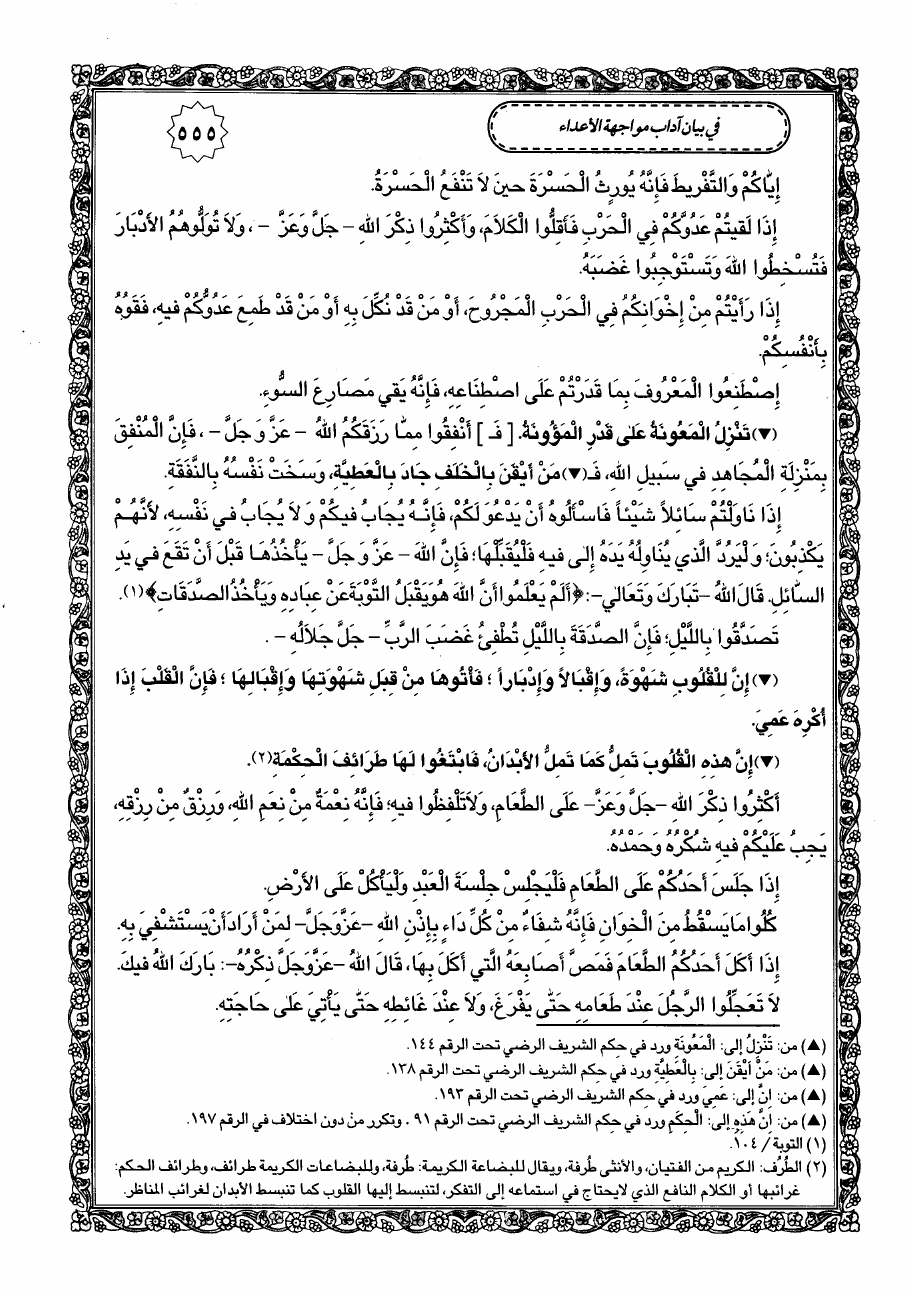 في بيان آداب مواجهة الأعداء
٥٥٥
إِيَّاكُمْ وَالتَّفْرِيطَ فَإِنَّهُ يُورِثُ الْحَسْرَةَ حينَ لاَ تَنْفَعُ الْحَسْرَةُ.
إِذَا لَقيتُمْ عَدُوَّكُمْ فِي الْحَرْبِ فَأَقِلُّوا الْكَلاَمَ، وَأَكْثِرُوا ذِكْرَ اللهِ – جَلَّ وَعَزَّ – ، وَلاَ تُوَلُّوهُمُ الأَدْبَارَ
فَتُسْخِطُوا اللهَ وَتَسْتَوْجِبُوا غَضَبَهُ.
إِذَا رَأَيْتُمْ مِنْ إِخْوَانِكُمُ فِي الْحَرْبِ الْمَجْرُوحَ، أَوْ مَنْ قَدْ نُكِّلَ بِهِ أَوْ مَنْ قَدْ طَمِعَ عَدُوُّكُمْ فيهِ، فَقَوُّهُ
بِأَنْفُسِكُمْ.
إِصْطَنِعُوا الْمَعْرُوفَ بِمَا قَدَرْتُمْ عَلَى اصْطِنَاعِهِ، فَإِنَّهُ يَقي مَصَارِعَ السُّوءِ.
(▼) تَنْزِلُ الْمَعُونَةُ عَلىٰ قَدْرِ الْمَؤُونَةُ. [ فَـ ] أَنْفِقُوا مِمَّا رَزَقَكُمُ اللهُ – عَزَّ وَ جَلَّ – ، فَإِنَّ الْمُنْفِقَ
بِمَنْزِلَةِ الْمُجَاهِدِ في سَبيلِ اللهِ، فَـ(▼) مَنْ أَيْقَنَ بِالْخَلَفِ جَادَ بِالْعَطِيَّةِ، وَسَخَتْ نَفْسُهُ بِالنَّفَقَةِ.
إِذَا نَاوَلْتُمْ سَائِلاً شَيْئاً فَاسْأَلُوهُ أَنْ يَدْعُوَ لَكُمْ، فَإِنَّهُ يُجَابُ فيكُمْ وَ لاَ يُجَابُ في نَفْسِهِ، لأَنَّهُمْ
يَكْذِبُونَ؛ وَلْيَرُدَّ الَّذي يُنَاوِلُهُ يَدَهُ إِلىٰ فيهِ فَلْيُقَبِّلْهَا؛ فَإِنَّ اللهَ – عَزَّ وَ جَلَّ – يَأْخُذُهَا قَبْلَ أَنْ تَقَعَ في يَدِ
السَّائِلِ. قَالَ اللهُ –تَبَارَكَ وَتَعَالىٰ–: ﴿أَلَمْ يَعْلَمُوا أَنَّ اللهَ هُوَ يَقْبَلُ التَّوْبَةَ عَنْ عِبَادِهِ وَيَأْخُذُ الصَّدَقَاتِ﴾(١).
تَصَدَّقُوا بِاللَّيْلِ؛ فَإِنَّ الصَّدَقَةَ بِاللَّيْلِ تُطْفِئُ غَضَبَ الرَّبِّ – جَلَّ جَلاَلُهُ – .
(▼) إِنَّ لِلْقُلُوبِ شَهْوَةً، وَإِقْبَالاً وَإِدْبَاراً ؛ فَأْتُوهَا مِنْ قِبَلِ شَهْوَتِهَا وَإِقْبَالِهَا ؛ فَإِنَّ الْقَلْبَ إِذَا
أُكْرِهَ عَمِيَ.
(▼) إِنَّ هٰذِهِ الْقُلُوبَ تَمَلُّ كَمَا تَمَلُّ الأَبْدَانُ، فَابْتَغُوا لَهَا طَرَائِفَ الْحِكْمَةِ(٢).
أَكْثِرُوا ذِكْرَ اللهِ –جَلَّ وَعَزَّ– عَلَى الطَّعَامِ، وَلاَ تَلْفِظُوا فيهِ؛ فَإِنَّهُ نِعْمَةٌ مِنْ نِعَمِ اللهِ، وَرِزْقٌ مِنْ رِزْقِهِ،
يَجِبُ عَلَيْكُمْ فيهِ شُكْرُهُ وَحَمْدُهُ.
إِذَا جَلَسَ أَحَدُكُمْ عَلَى الطَّعَامِ فَلْيَجْلِسْ جِلْسَةَ الْعَبْدِ وَلْيَأْكُلْ عَلَى الأَرْضِ.
كُلُوا مَا يَسْقُطُ مِنَ الْخِوَانِ فَإِنَّهُ شِفَاءٌ مِنْ كُلِّ دَاءٍ بِإِذْنِ اللهِ –عَزَّ وَجَلَّ– لِمَنْ أَرَادَ أَنْ يَسْتَشْفِيَ بِهِ.
إِذَا أَكَلَ أَحَدُكُمُ الطَّعَامَ فَمَصَّ أَصَابِعَهُ الَّتي أَكَلَ بِهَا، قَالَ اللهُ –عَزَّ وَجَلَّ ذِكْرُهُ–: بَارَكَ اللهُ فيكَ.
لاَ تَعَجِّلُوا الرَّجُلَ عِنْدَ طَعَامِهِ حَتّىٰ يَفْرَغَ، وَلاَ عِنْدَ غَائِطِهِ حَتّىٰ يَأْتِيَ عَلىٰ حَاجَتِهِ.
(▲) من: تَنْزِلُ إلى: الْمَعُونَةِ ورد في حكم الشريف الرضي تحت الرقم ١٤٤.
(▲) من: مَنْ أَيْقَنَ إلى: بِالْعَطِيَّةِ ورد في حكم الشريف الرضي تحت الرقم ١٣٨.
(▲) من: إِنَّ إلى: عَمِيَ ورد في حكم الشريف الرضي تحت الرقم ١٩٣.
(▲) من: إِنَّ هَذِهِ إلى: الْحِكَمِ ورد في حكم الشريف الرضي تحت الرقم ٩١ . وتكرر من دون اختلاف في الرقم ١٩٧.
(١) التوبة / ١٠٤.
(٢) الطُرُف: الكريم من الفتيان، والأنثى طُرفة، ويقال للبضاعة الكريمة: طُرفة، وللبضاعات الكريمة طرائف، وطرائف الحكم:
غرائبها أو الكلام النافع الذي لايحتاج في استماعه إلى التفكر، لتنبسط إليها القلوب كما تنبسط الأبدان لغرائب المناظر.